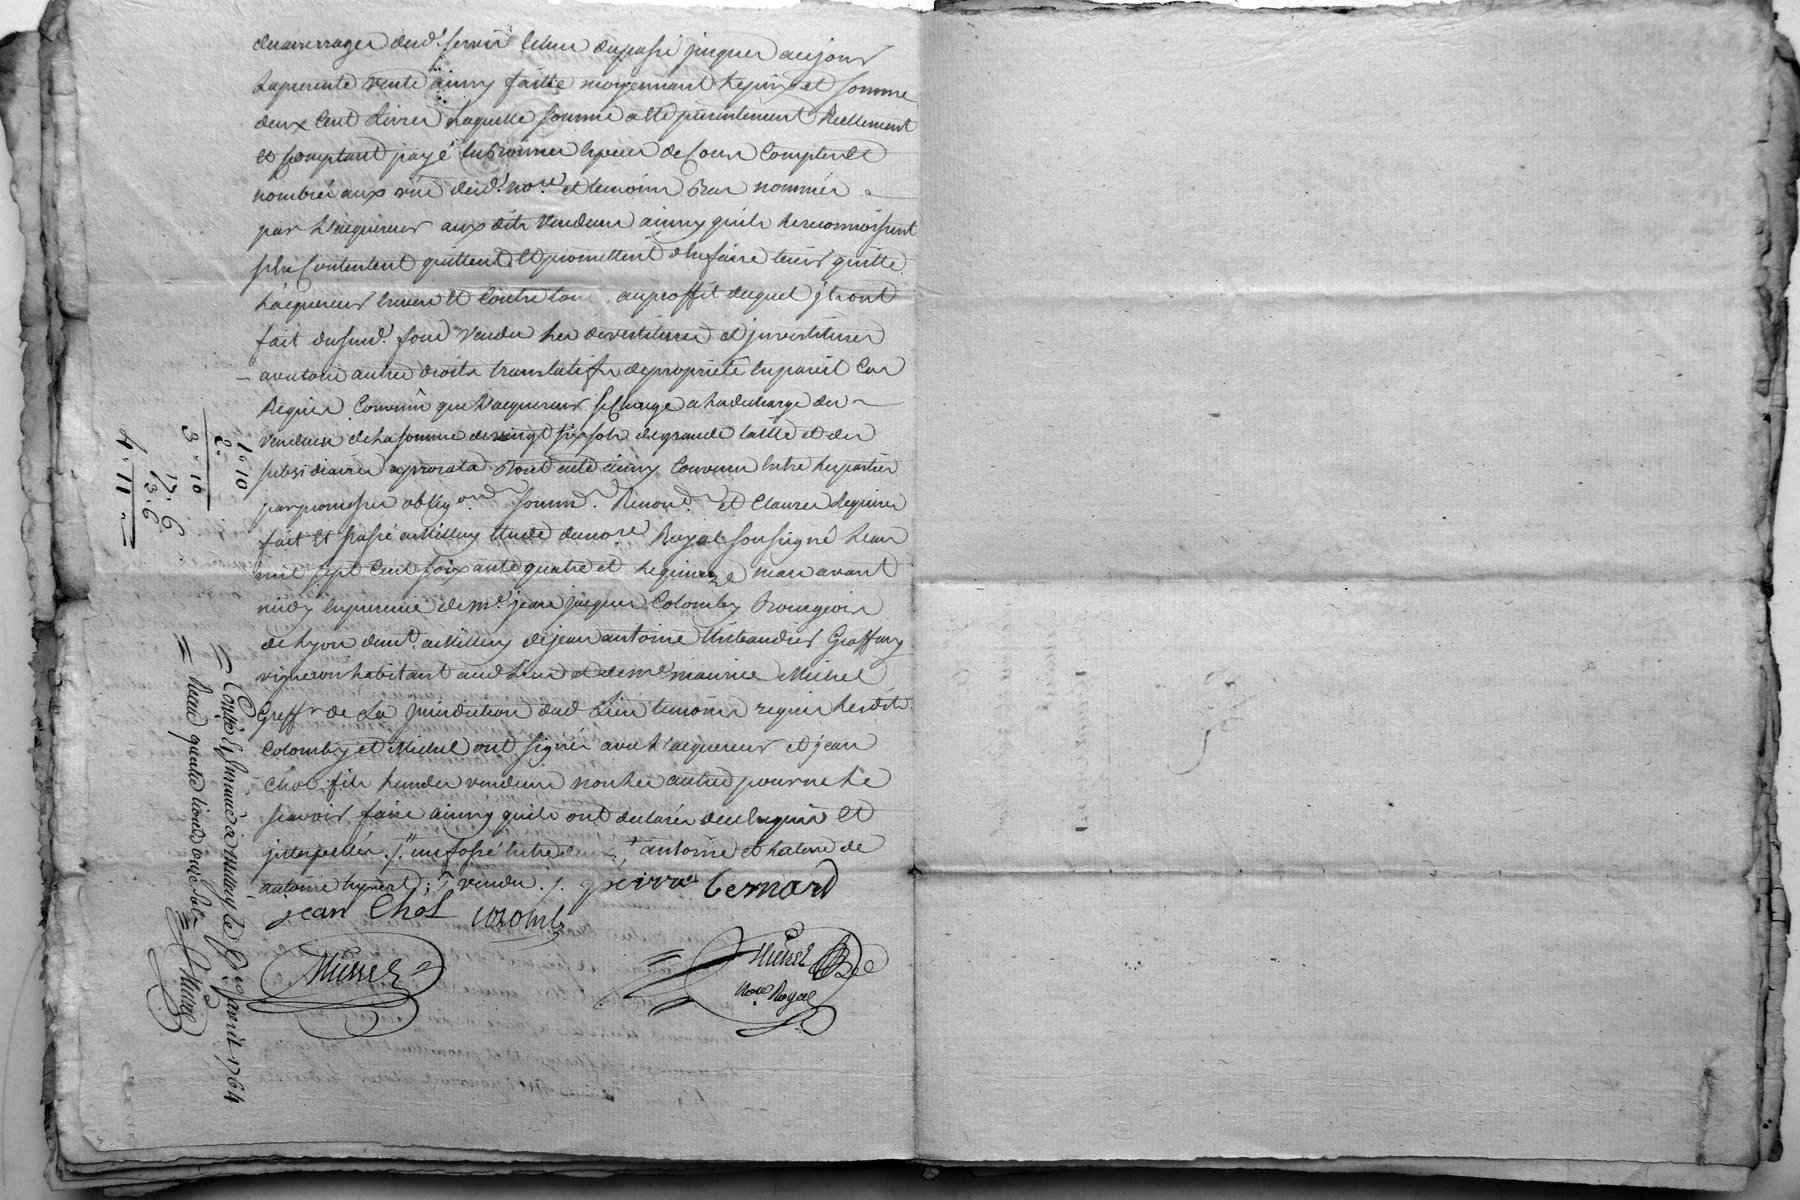 desarrerages desd.t servis et lieux du passé jusques au jour
La presente vente ainsy faitte moyennant le prix et somme
deux Cent Livres Laquelle somme a eté presentement Reellement
et Comptant payé en bonnes especes de Cours Comptees et
nombrée aux vûe desd.t no.re et temoins Bas nommés
par L'acquereur aux dits Vendeurs ainsy quils Le reconnoissent
s'en Contentent quittent et promettent d'en faire tenir quitte
L'acquereur envers et Contre tous au proffit duquel jls ont
fait du susd.t fond Vendu les devestitures et jnvestitures
avec tous autres droits translatifs de proprieté en pareil Cas
Requis Convenu que L'acquereur se Charge a La decharge des
Vendeurs de La somme de vingt six sols de grande taille et des
subsidiaires a prorata Dont acte ainsy Convenu entre les parties
par promesses oblig.ons soum.ns Renon.ns et Clauses Requises
fait et passé a Millery Etude du no.re Royal soussigné L'an
mil sept Cent soixante quatre et le quinze mars avant
midy en presence de m.re jean jacques Colomby Bourgeois
de Lyon dem.t a Millery de jean antoine
vigneron habitant aud Lieu et de m.re maurice Michel
Greff.r de La jurisdiction dud Lieu temoins requis Lesdits
Colomby et Michel ont signés avec L'acquereur et jean
Chol fils L'un des vendeurs non les autres pour ne Le
sçavoir faire ainsy quils ont declarés de ce Enquis et
jnterpellés ./. un fossé entre deux antoine et
antoine ./. vendu ./. pierre bernard
jean Chol colomby
Michel
Michel
No.re Royal
1 . 10
2 .
3 . 10
17 . 6
3 . 6
4 . 11
Con.lé & Jnsinué à millery le avril 1764
Reçu quatre livres onze sols Michel